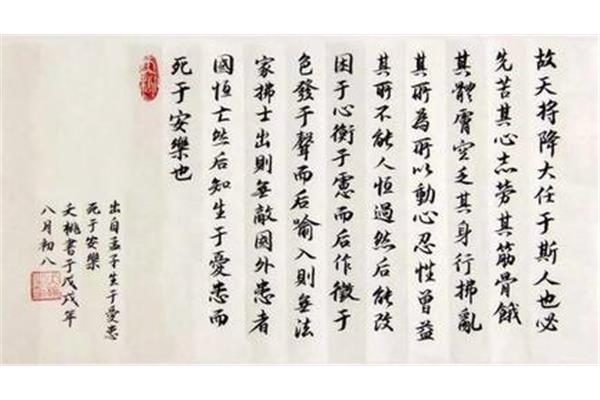 故天将降大任于斯人也必
先苦其心志劳其筋骨餓
其體膚空乏其身行拂亂
其所為所以動心忍性曾益
其所不能人恆過然后能改
困于心衡于慮而后作徵于
色發于聲而后喻入則無法
家拂士出則無敵國外患者
國恆亡然后知生于憂患而
死于安樂也
出自孟子生于憂患
死于安樂
夭桃書于戊戌年
八月初八